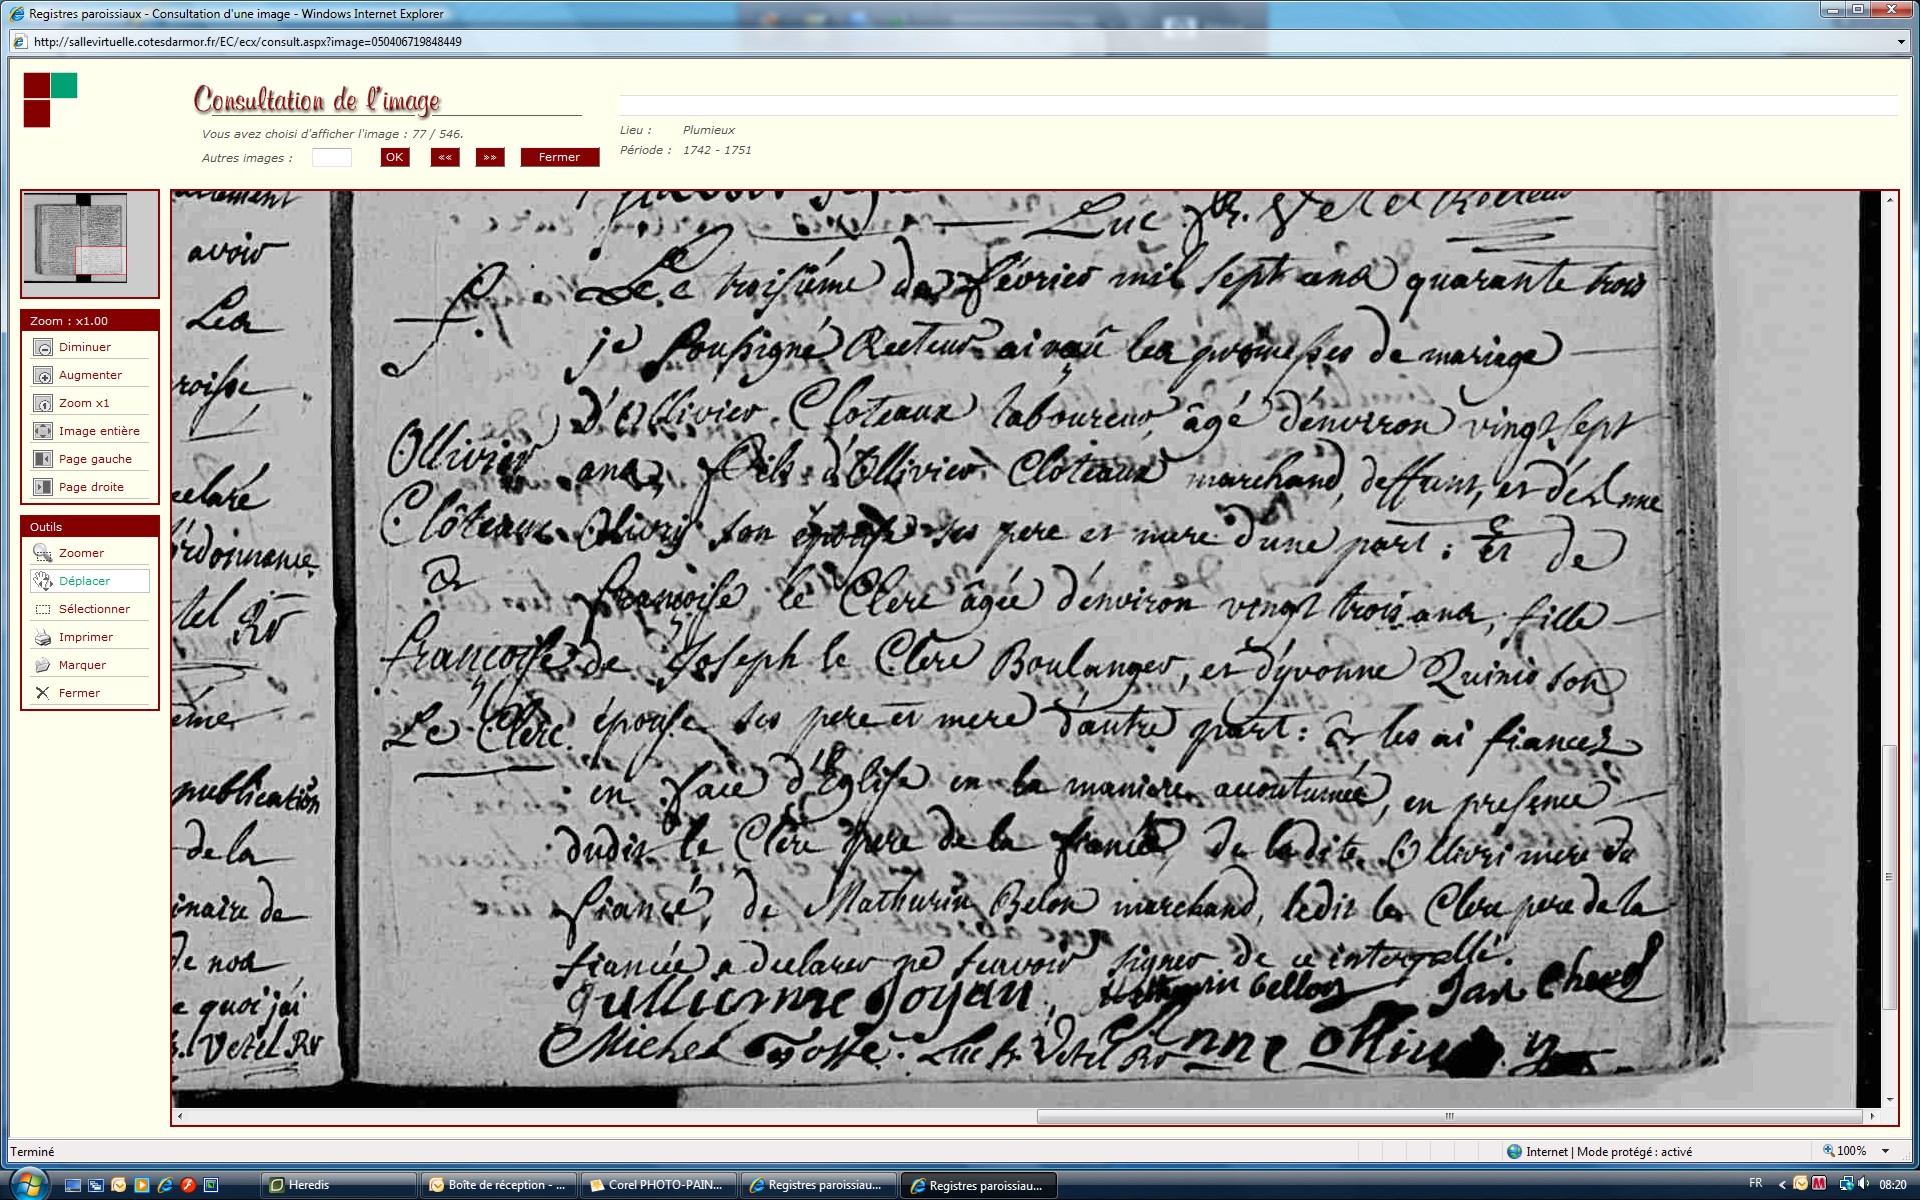 Registres paroissiaux - Consultation d'une image - Windows Internet Explorer
http://sallevirtuelle.cotesdarmor.fr/EC/ecx/consult.aspx?image=050406719848449
Consultation de l'image
Vous avez choisi d'afficher l'image : 77 / 546.
Autres images :
OK
««
»»
Fermer
Lieu : Plumieux
Période : 1742 - 1751
Zoom : x1.00
Diminuer
Augmenter
Zoom x1
Image entière
Page gauche
Page droite
Outils
Zoomer
Déplacer
Sélectionner
Imprimer
Marquer
Fermer
avoir
Les
roisse
eclaré
ordonnance
tel Rr
publication
de la
inaire de
de nos
e quoi j'ai
. Vetel Rr
f.
Ollivier
Clôteaux
&
françoise
Le Clerc
Luc fr. Vetel Recteur
Le troisiéme de février mil sept cens quarante trois
je soussigné Recteur ai reçû les promesses de mariage
d'Ollivier Cloteaux laboureur, âgé d'environ vingt sept
ans, fils d'Ollivier Cloteaux marchand, deffunt, et d'Anne
Ollivry son épouse ses pere et mere d'une part : Et de
françoise le Clerc âgée d'environ vingt trois ans, fille
de Joseph le Clerc Boulanger, et d'yvonne Quinio son
épouse ses pere et mere d'autre part : & les ai fiancez
en face d'Eglise en la maniere accoutumée, en presence
dudit le Clerc pere de la fiancée, de ladite Ollivri mere du
fiancé, de Mathurin Belon marchand, ledit le Clerc pere de la
fiancée a declarer ne sçavoir signer de ce interpellé.
gullierme Joyan, Bellon Jan
Michel Luc fr. Vetel Rr Anne olliv
Terminé
Internet | Mode protégé : activé
100%
Heredis
Boîte de réception - ...
Corel PHOTO-PAIN...
Registres paroissiau...
Registres paroissiau...
FR
08:20